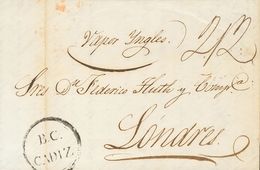 Vapor Yngles.
2/2
Sres Dn Federico Huth y Compa.
Londres.
B.C.
CADIZ